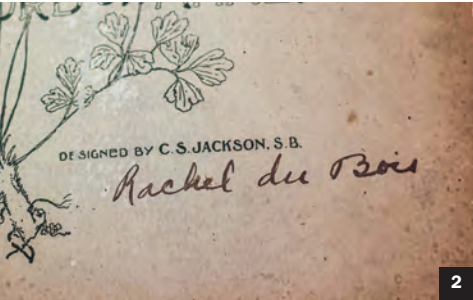 DESIGNED BY C.S. JACKSON, S.B.
Rachel du Bois
2